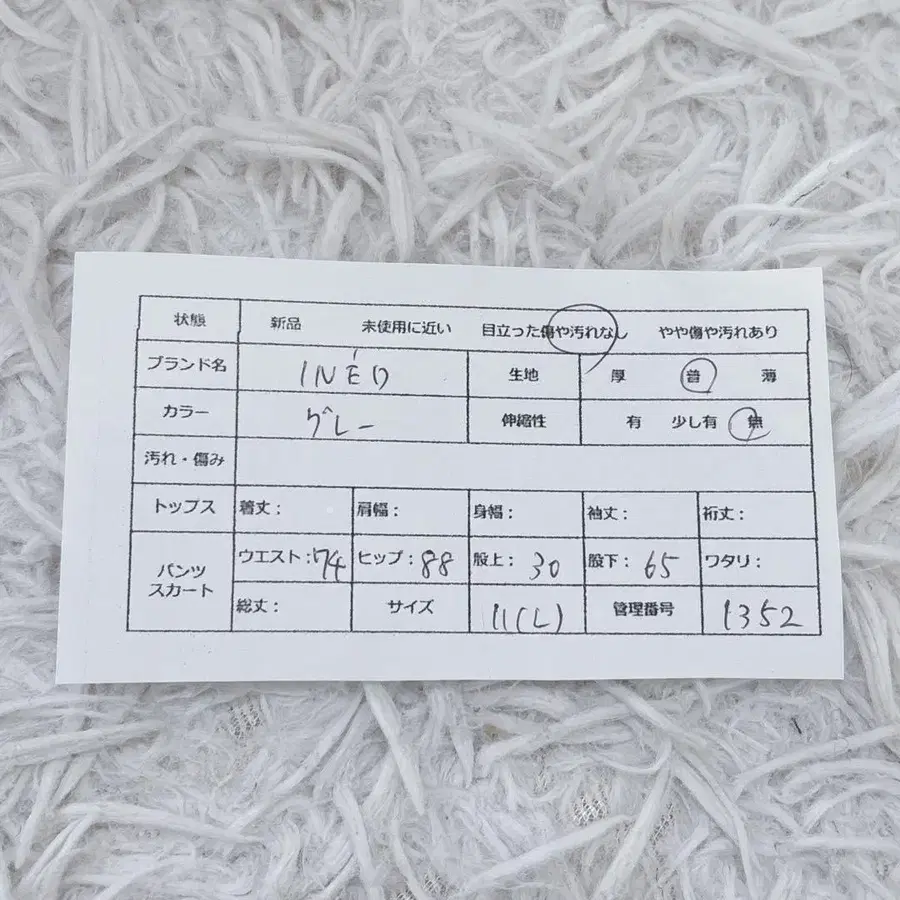 状態 新品 未使用に近い 目立った傷や汚れなし やや傷や汚れあり
ブランド名 INÉD 生地 厚 普 薄
カラー グレー 伸縮性 有 少し有 無
汚れ・傷み
トップス 着丈: 肩幅: 身幅: 袖丈: 裄丈:
パンツ スカート ウエスト:74 ヒップ:88 股上:30 股下:65 ワタリ:
総丈: サイズ 11(L) 管理番号 1352